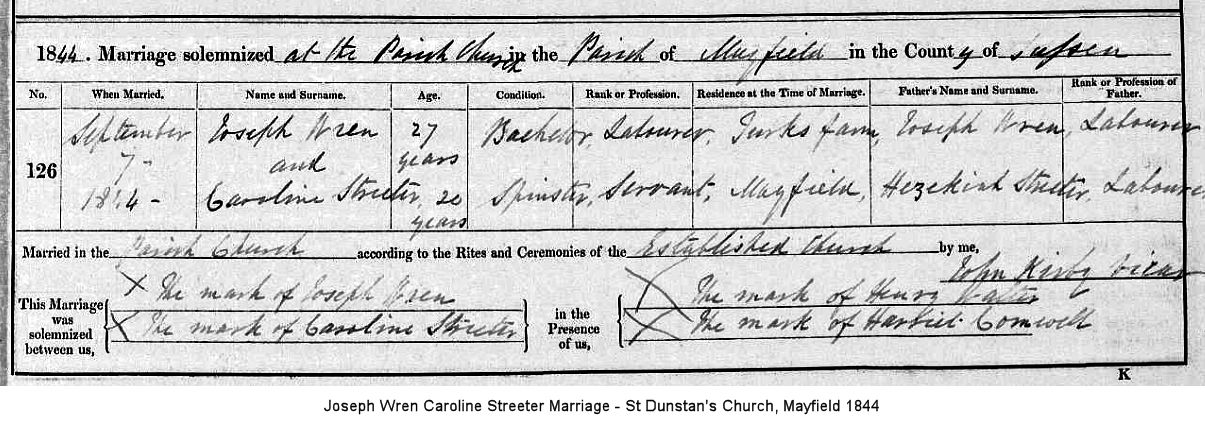 1844. Marriage solemnized at the Parish Church in the Parish of Mayfield in the County of Sussex
No. When Married. Name and Surname. Age. Condition. Rank or Profession. Residence at the Time of Marriage. Father's Name and Surname. Rank or Profession of Father.
126
September 7 - 1844 -
Joseph Wren 27 years Bachelor, Labourer, Turks farm, Joseph Wren, Labourer
and
Caroline Streeter, 20 years Spinster, Servant, Mayfield, Hezekiah Streeter, Labourer
Married in the Parish Church according to the Rites and Ceremonies of the Established Church by me,
John Kirby Vicar
This Marriage was solemnized between us,
X The mark of Joseph Wren
X The mark of Caroline Streeter
in the Presence of us,
X The mark of Henry Walter
X The mark of Harriet Cornwell
K
Joseph Wren Caroline Streeter Marriage - St Dunstan's Church, Mayfield 1844